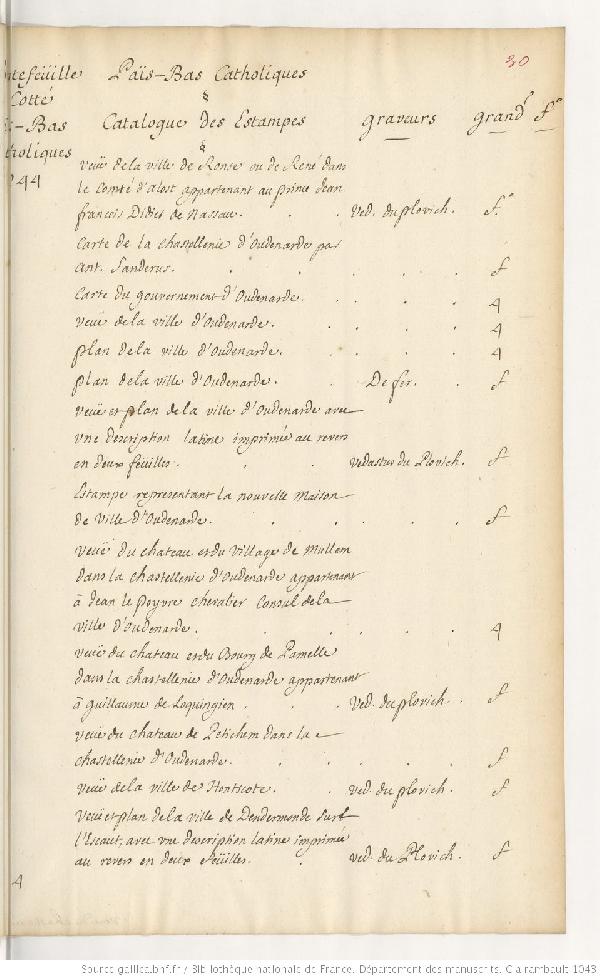 30
tefeüille Païs-Bas Catholiques
Cotté &
-Bas Catalogue des Estampes graveurs grand.r f.o
tholiques &
44 veüe de la ville de Ronse ou de René dans
le Comté d'alost appartenant au prince Jean
francois Didier de Nassau. ved. du plovich. f.o
Carte de la chastellenie d'Oudenarde par
Ant. Sanderus. f
Carte du gouvernement d'Oudenarde. 4
veue de la ville d'Oudenarde. 4
plan de la ville d'Oudenarde. 4
plan de la ville d'Oudenarde. De fer. f
veüe et plan de la ville d'Oudenarde avec
une description latine imprimée au revers
en deux feüilles. vedastus du Plovich. f
Estampe representant la nouvelle Maison
de ville d'Oudenarde. f
veüe du chateau et du village de Mullem
dans la chastellenie d'Oudenarde appartenant
à Jean le poyvre chevalier Consul de la
ville d'Oudenarde. 4
veüe du chateau et du Bourg de Pamelle
dans la chastellenie d'Oudenarde appartenant
à guillaume de Loquingien. ved. du plovich. f
veüe du chateau de Petichem dans la
chastellenie d'Oudenarde. f
veüe de la ville de Hontscote. ved. du plovich. f
veüe et plan de la ville de Dendermonde sur
l'Escaut, avec une description latine imprimée
au revers en deux feüilles. ved. du Plovich. f
4
Source gallica.bnf.fr / Bibliothèque nationale de France. Département des manuscrits. Clairambault 1043